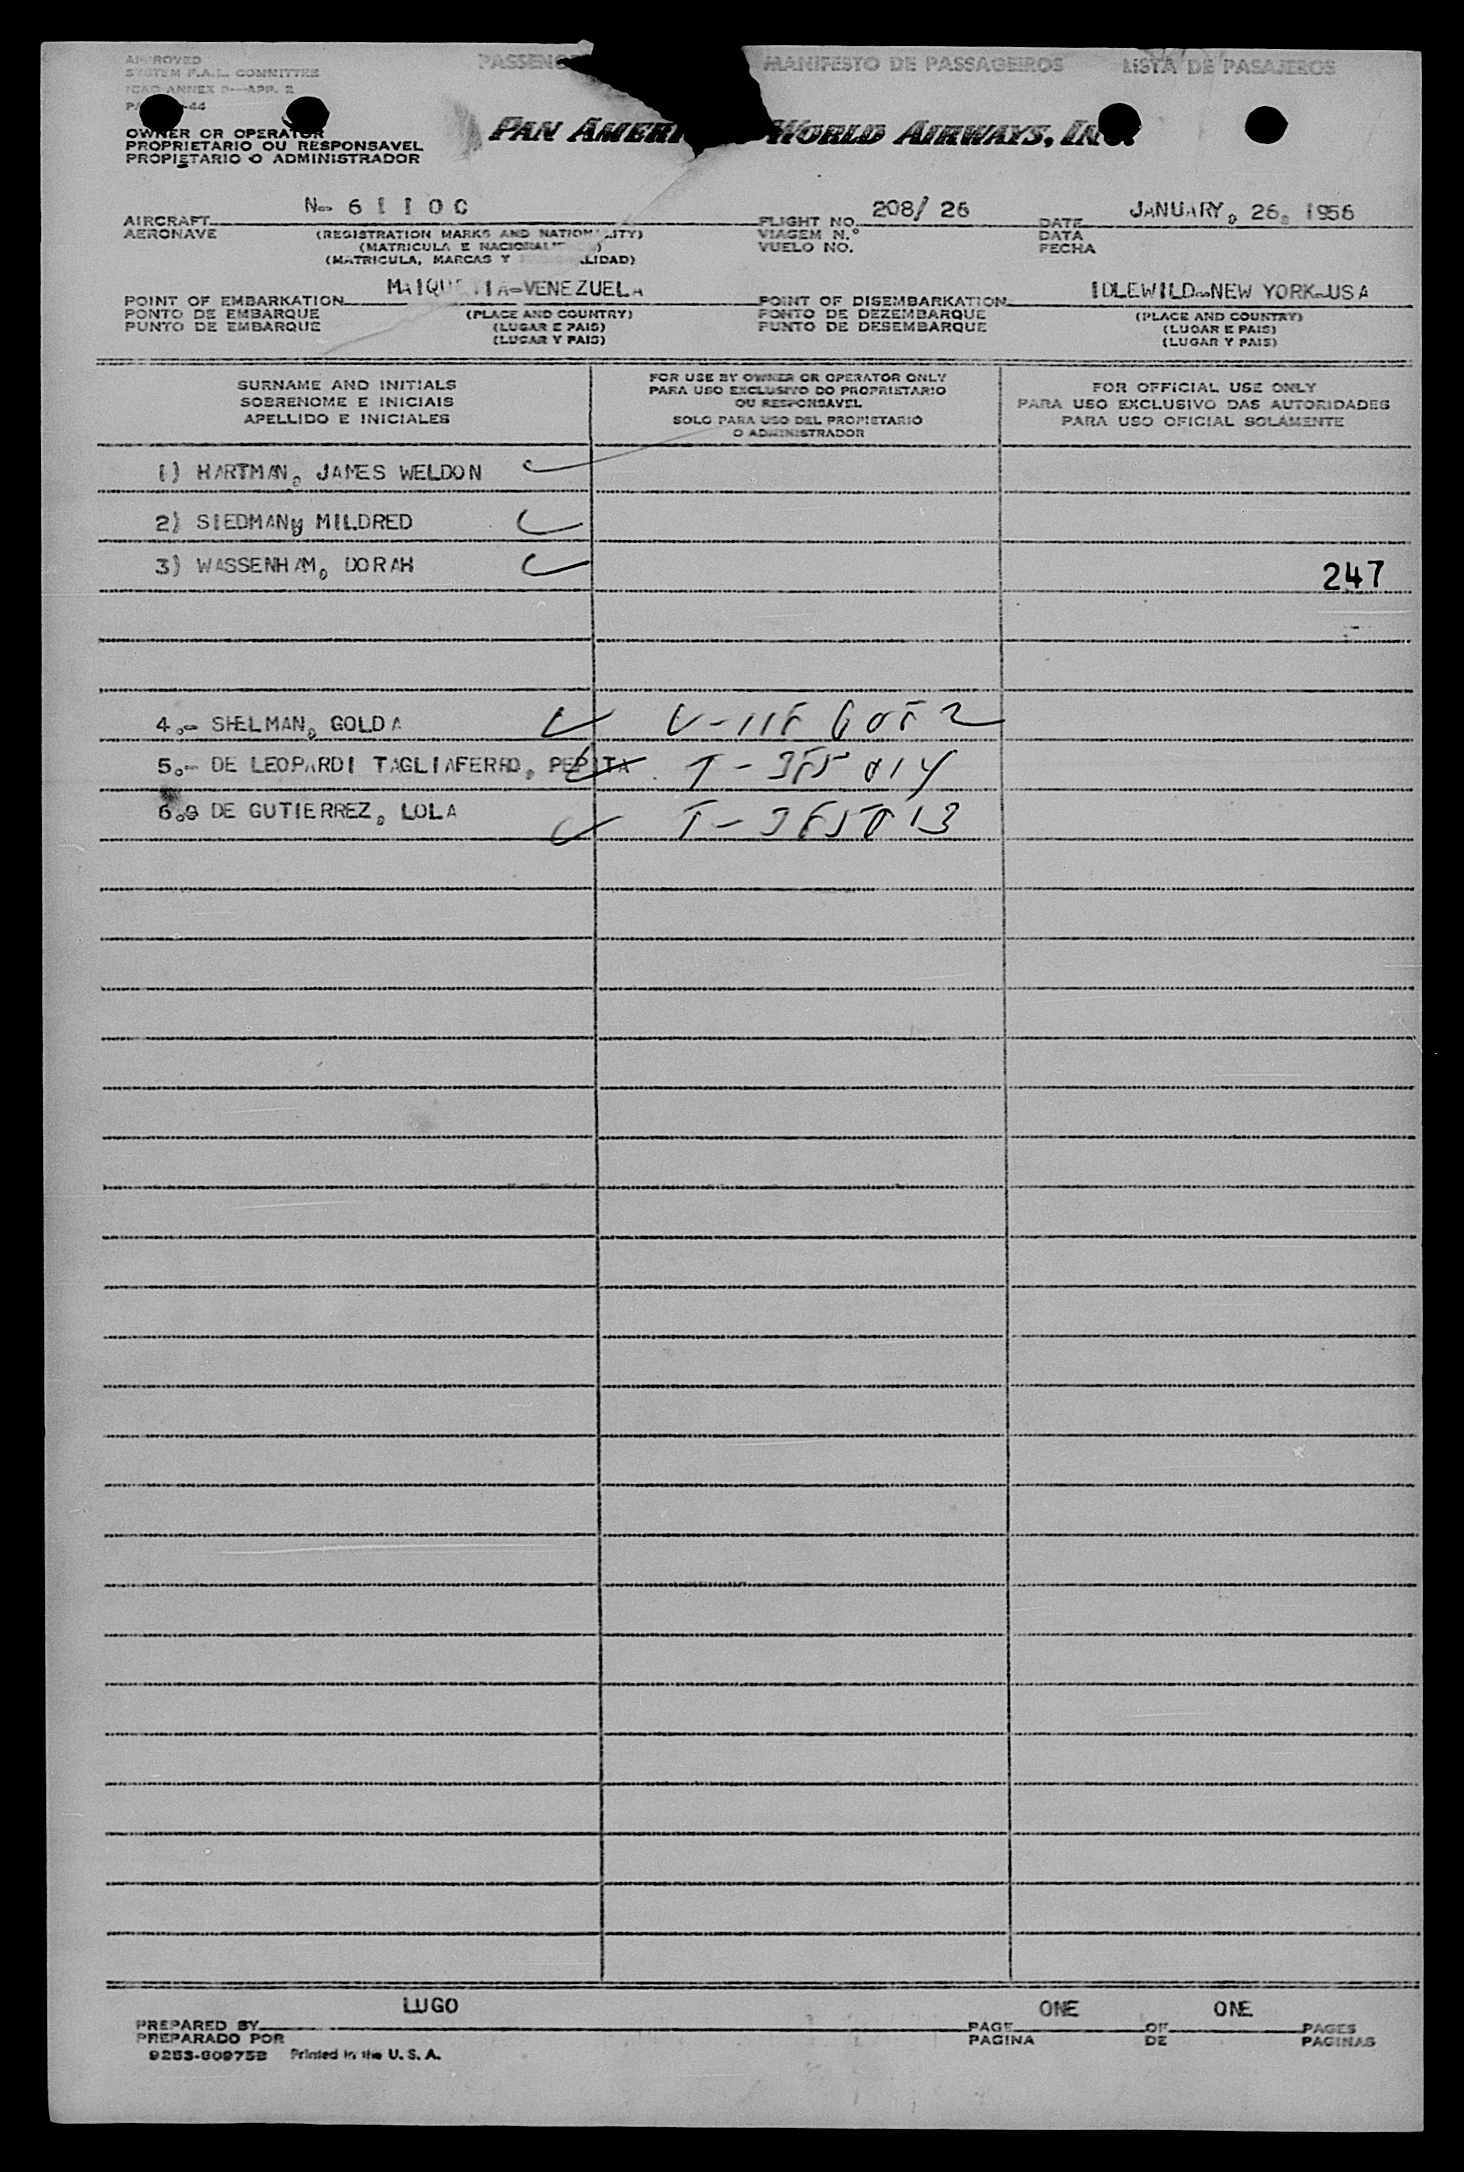 APPROVED
SYSTEM F.A.L. COMMITTEE
ICAO ANNEX 9—APP. 2
MANIFESTO DE PASSAGEIROS
LISTA DE PASAJEROS
OWNER OR OPERATOR
PROPRIETARIO OU RESPONSAVEL
PROPIETARIO O ADMINISTRADOR
PAN AMERI WORLD AIRWAYS, INC.
AIRCRAFT N- 6 1 1 0 C FLIGHT NO. 208/ 26 DATE JANUARY, 26, 1956
AERONAVE (REGISTRATION MARKS AND NATIONALITY) VIAGEM N.º DATA
(MATRICULA E NACIONALI ) VUELO NO. FECHA
(MATRICULA, MARCAS Y LIDAD)
POINT OF EMBARKATION MAIQUETIA-VENEZUELA POINT OF DISEMBARKATION IDLEWILD-NEW YORK-USA
PONTO DE EMBARQUE (PLACE AND COUNTRY) PONTO DE DEZEMBARQUE (PLACE AND COUNTRY)
PUNTO DE EMBARQUE (LUGAR E PAIS) PUNTO DE DESEMBARQUE (LUGAR E PAIS)
(LUGAR Y PAIS) (LUGAR Y PAIS)
SURNAME AND INITIALS
SOBRENOME E INICIAIS
APELLIDO E INICIALES
FOR USE BY OWNER OR OPERATOR ONLY
PARA USO EXCLUSIVO DO PROPRIETARIO
OU RESPONSAVEL
SOLO PARA USO DEL PROPIETARIO
O ADMINISTRADOR
FOR OFFICIAL USE ONLY
PARA USO EXCLUSIVO DAS AUTORIDADES
PARA USO OFICIAL SOLAMENTE
1) HARTMAN, JAMES WELDON
2) SIEDMAN, MILDRED
3) WASSENHAM, DORAH
247
4.- SHELMAN, GOLDA
5.- DE LEOPARDI TAGLIAFERRO, PEPITA
6.- DE GUTIERREZ, LOLA
PREPARED BY LUGO PAGE ONE OF ONE PAGES
PREPARADO POR PAGINA DE PAGINAS
9253-80975B Printed in the U. S. A.